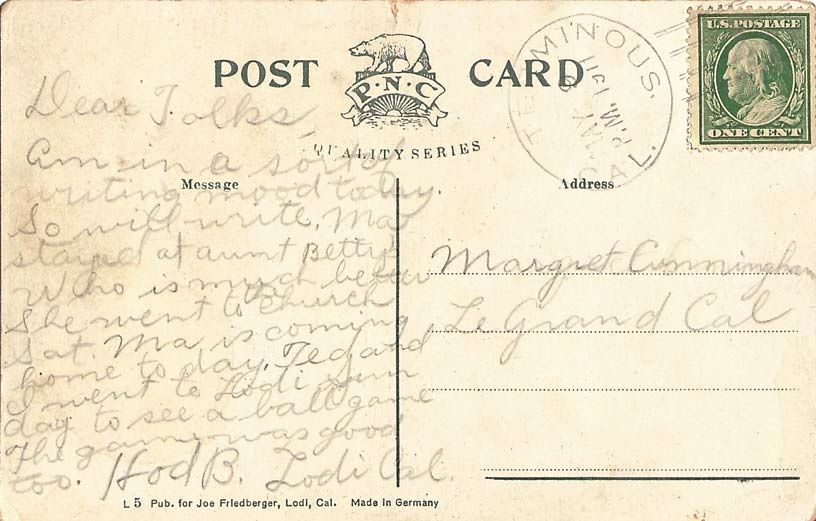 POST CARD
P·N·C
QUALITY SERIES
TERMINOUS, CAL.
MAY
P.M.
1911
U.S. POSTAGE
ONE CENT
Message
Address
Dear Folks,
Am in a sort of
writing mood today.
So will write. Ma
stayed at aunt Betty's
Who is much better
She went to Church
Sat. Ma is coming
home to day. Ted and
I went to Lodi Sun
day to see a ball game
The game was good
too. Hod B. Lodi Cal.
Margret Cunningham
Le Grand Cal
L 5 Pub. for Joe Friedberger, Lodi, Cal. Made in Germany